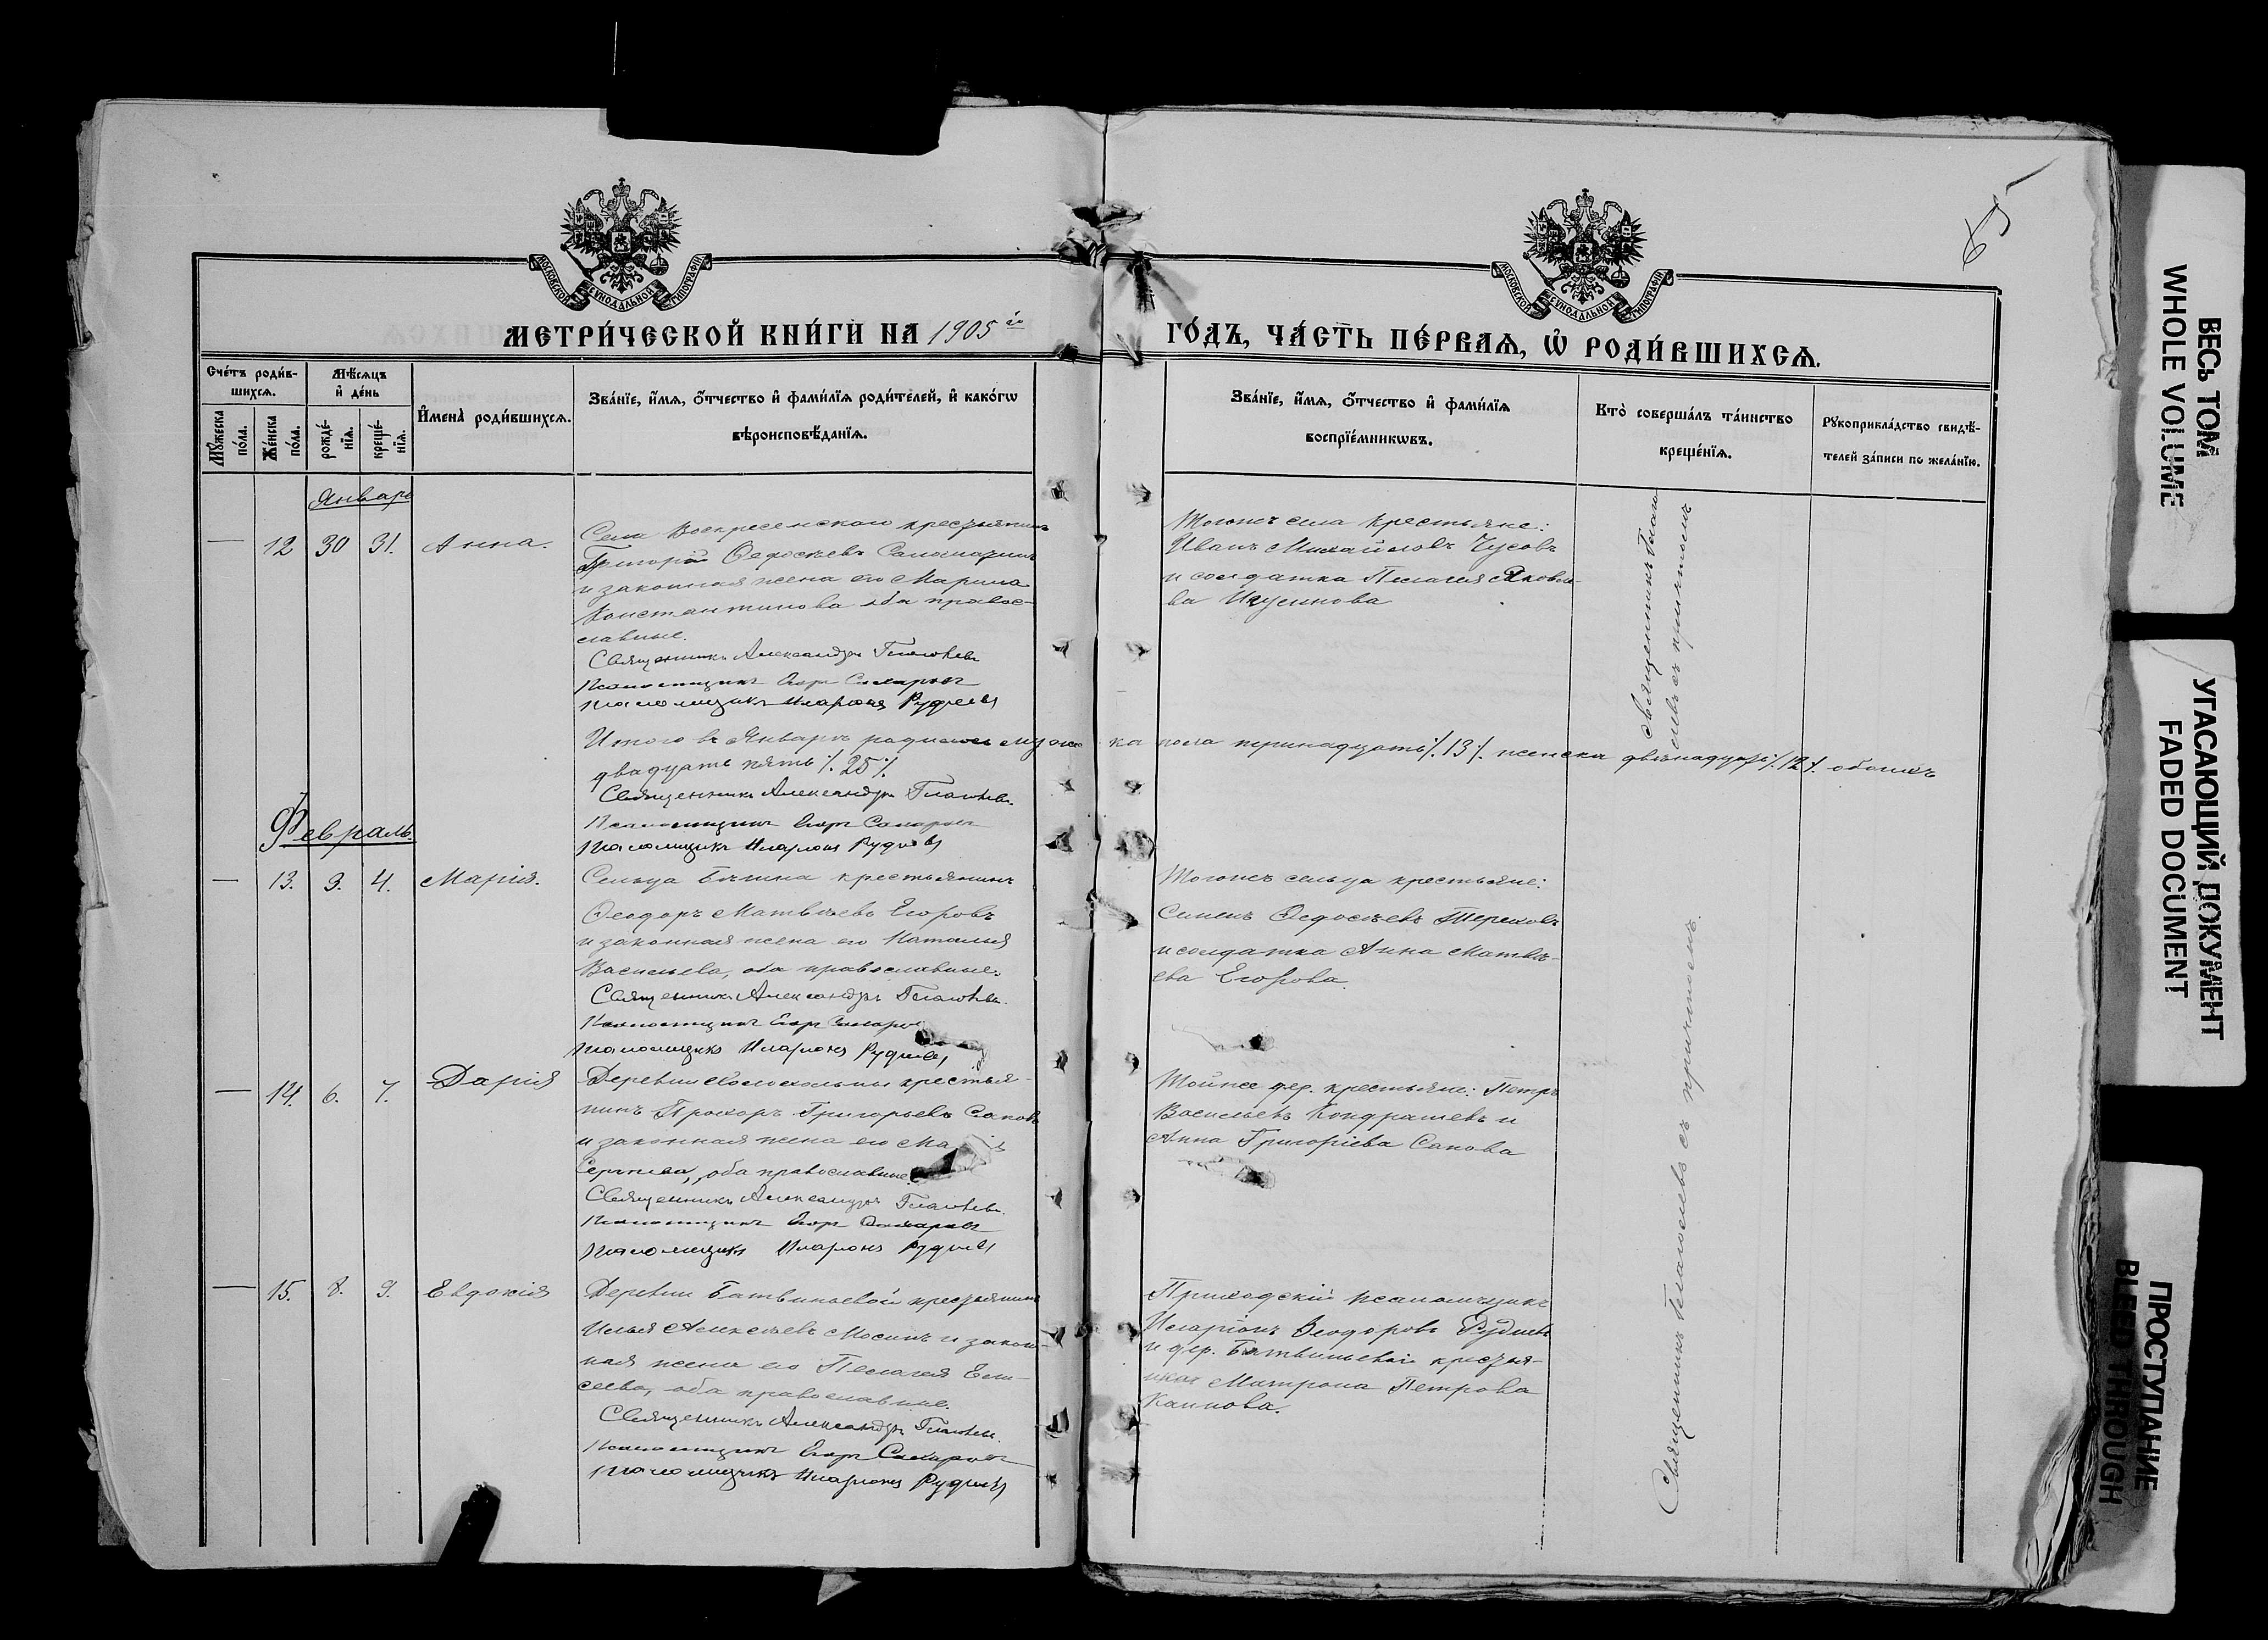 65
МОСКОВСКОЙ СУНОДАЛЬНОЙ ТИПОГРАФІИ
МОСКОВСКОЙ СУНОДАЛЬНОЙ ТИПОГРАФІИ
МЕТРИ́ЧЕСКОЙ КНИ́ГИ НА 1905 го
ГО́ДЪ, ЧА́СТЬ ПЕ́РВАѦ, Ѡ҆ РОДИ́ВШИХСѦ.
Сче́тъ роди́в-
шихсѧ.
Мѹ́жеска по́ла.
Же́нска по́ла.
Мѣ́сѧцъ
и҆ де́нь
рожде́-нїѧ.
креще́-нїѧ.
И҆мена̀ роди́вшихсѧ.
Зва́нїе, и҆́мѧ, ѻ҆́тчество и҆ фами́лїѧ роди́телей, и҆ како́гѡ
вѣроисповѣ́данїѧ.
Зва́нїе, и҆́мѧ, ѻ҆́тчество и҆ фами́лїѧ
воспрїе́мникѡвъ.
Кто̀ соверша́лъ та́инство
креще́нїѧ.
Рѹкоприкла́дство свидѣ́-
телей за́писи по жела́нїю.
Январь
— 12 30 31. Анна.
Села Воскресенскаго крестьянинъ
Григорій Ѳедосѣевъ
и законная жена его Марина
Константинова оба правос-
лавные.
Священникъ Александръ
Псаломщикъ Егоръ Сахаровъ
Псаломщикъ Иларіонъ Рудневъ
Тогоже села крестьяне:
Иванъ Михайловъ Чусовъ
и солдатка Пелагея Яковле-
ва
Священникъ
съ причтомъ
Итого въ Январѣ родилось мужес ка пола тринадцать ٪ 13 ٪ женска двѣнадцать ٪ 12 ٪ обоихъ
двадцать пять ٪ 25 ٪
Священникъ Александръ
Псаломщикъ Егоръ Сахаровъ
Псаломщикъ Иларіонъ Рудневъ
Февраль.
— 13. 3. 4. Марія.
Сельца крестьянинъ
Ѳеодоръ Матвѣевъ Егоровъ
и законная жена его Наталья
Васильева, оба православные.
Священникъ Александръ
Псаломщикъ Егоръ Сахаровъ
Псаломщикъ Иларіонъ Рудневъ
Тогоже сельца крестьяне:
Семенъ Ѳедосѣевъ Тереховъ
и солдатка Анна Матвѣ-
ева Егорова.
— 14. 6. 7. Дарія
Деревни крестья-
нинъ Прохоръ Григорьевъ Саповъ
и законная жена его
Сергѣева, оба православные.
Священникъ Александръ
Псаломщикъ Егоръ Сахаровъ
Псаломщикъ Иларіонъ Рудневъ
Тойже дер. крестьяне: Петръ
Васильевъ Кондрашевъ и
Анна Григоріева Сапова
— 15. 8. 9. Евдокія
Деревни Батвиньевой крестьянинъ
Илья Алексѣевъ Мосинъ и закон-
ная жена его Пелагея Ели-
сеева, оба православные.
Священникъ Александръ
Псаломщикъ Егоръ Сахаровъ
Псаломщикъ Иларіонъ Рудневъ
Приходскій псаломщикъ
Иларіонъ Ѳеодоровъ Рудневъ
и дер. Батвиньевой крестья-
нка Матрона Петрова
Священникъ съ причтомъ.
ВЕСЬ ТОМ
WHOLE VOLUME
УГАСАЮЩИЙ ДОКУМЕНТ
FADED DOCUMENT
ПРОСТУПАНИЕ
BLEED THROUGH